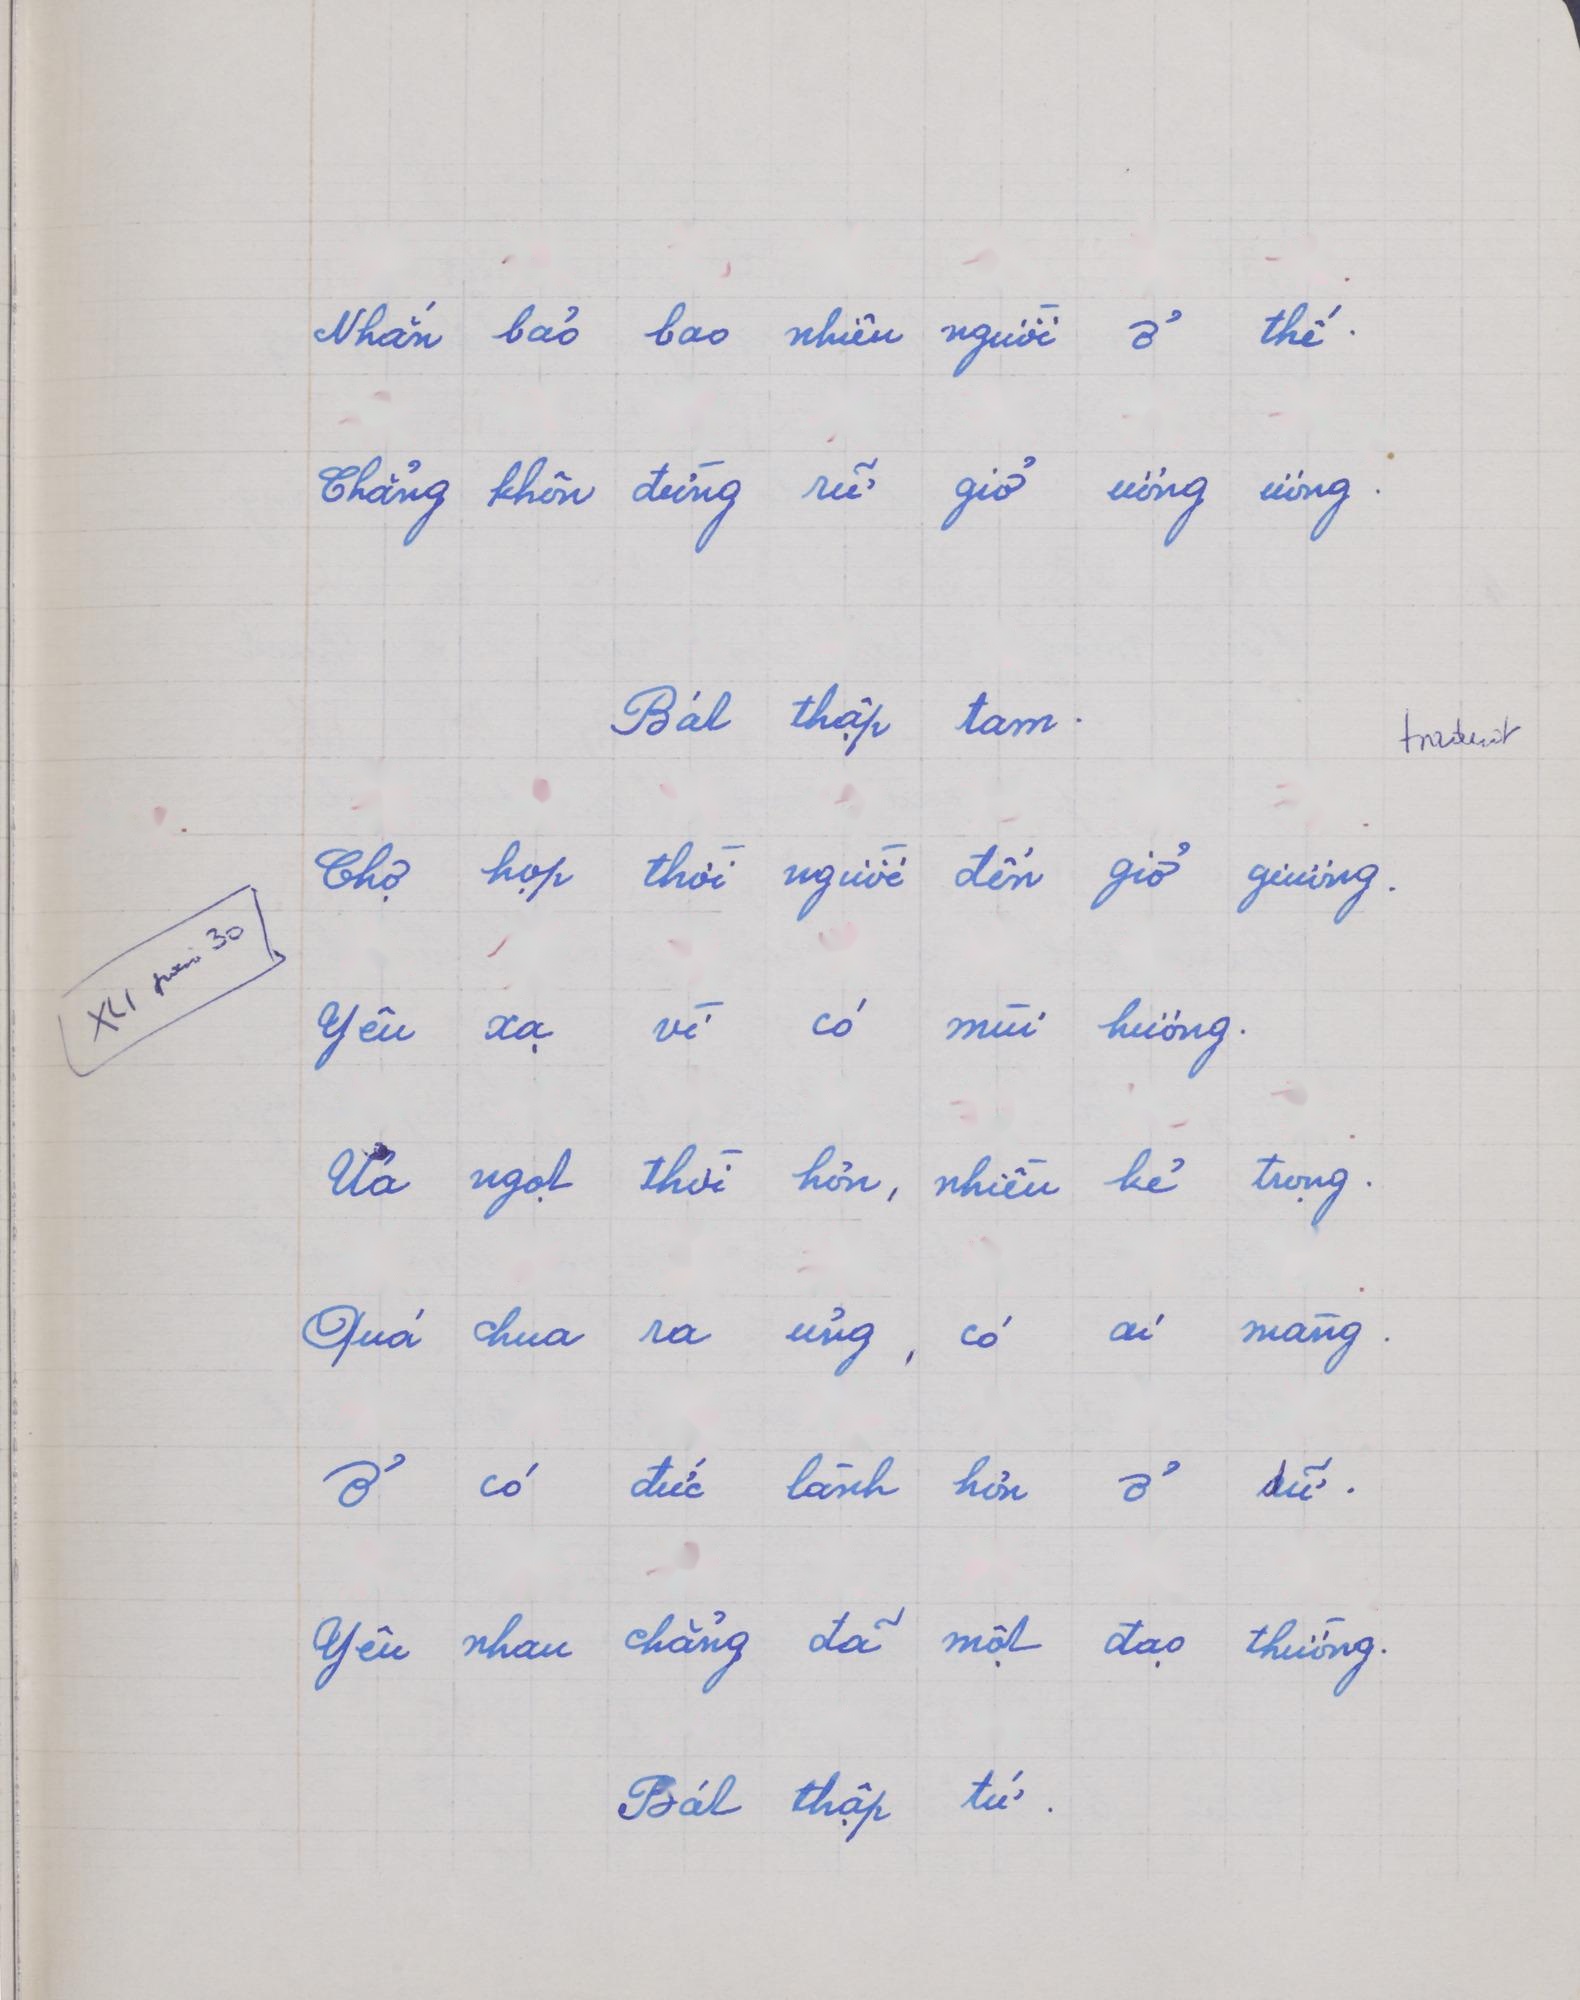 Nhắn bảo bao nhiêu người ở thế.
Chẳng khôn đừng rữ giở ương ương.
Bát thập tam.
traduit
Chợ họp thời người đến giở giương.
Yêu xạ vì có mùi hương.
XLI 30
Ưa ngọt thời hơn, nhiều kẻ trọng.
Quá chua ra ủng, có ai màng.
Ở có đức lành hơn ở dữ.
Yêu nhau chẳng đã một đạo thường.
Bát thập tứ.